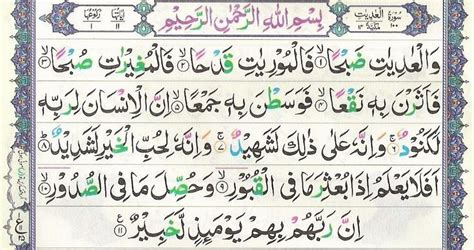 سُوْرَةُ الْعٰدِيٰت
١٠٠ مَكِّيَّة ١٤
بِسْمِ اللهِ الرَّحْمٰنِ الرَّحِيْمِ
اٰيَاتُهَا ١١ رُكُوْعُهَا ١
وَالْعٰدِيٰتِ ضَبْحًا ۙ﴿١﴾ فَالْمُوْرِيٰتِ قَدْحًا ۙ﴿٢﴾ فَالْمُغِيْرٰتِ صُبْحًا ۙ﴿٣﴾
فَاَثَرْنَ بِهٖ نَقْعًا ۙ﴿٤﴾ فَوَسَطْنَ بِهٖ جَمْعًا ۙ﴿٥﴾ اِنَّ الْاِنْسَانَ لِرَبِّهٖ
لَكَنُوْدٌ ۚ﴿٦﴾ وَاِنَّهٗ عَلٰى ذٰلِكَ لَشَهِيْدٌ ۚ﴿٧﴾ وَاِنَّهٗ لِحُبِّ الْخَيْرِ لَشَدِيْدٌ ؕ﴿٨﴾
اَفَلَا يَعْلَمُ اِذَا بُعْثِرَ مَا فِى الْقُبُوْرِ ۙ﴿٩﴾ وَحُصِّلَ مَا فِى الصُّدُوْرِ ۙ﴿١٠﴾
اِنَّ رَبَّهُمْ بِهِمْ يَوْمَئِذٍ لَّخَبِيْرٌ ﴿١١﴾